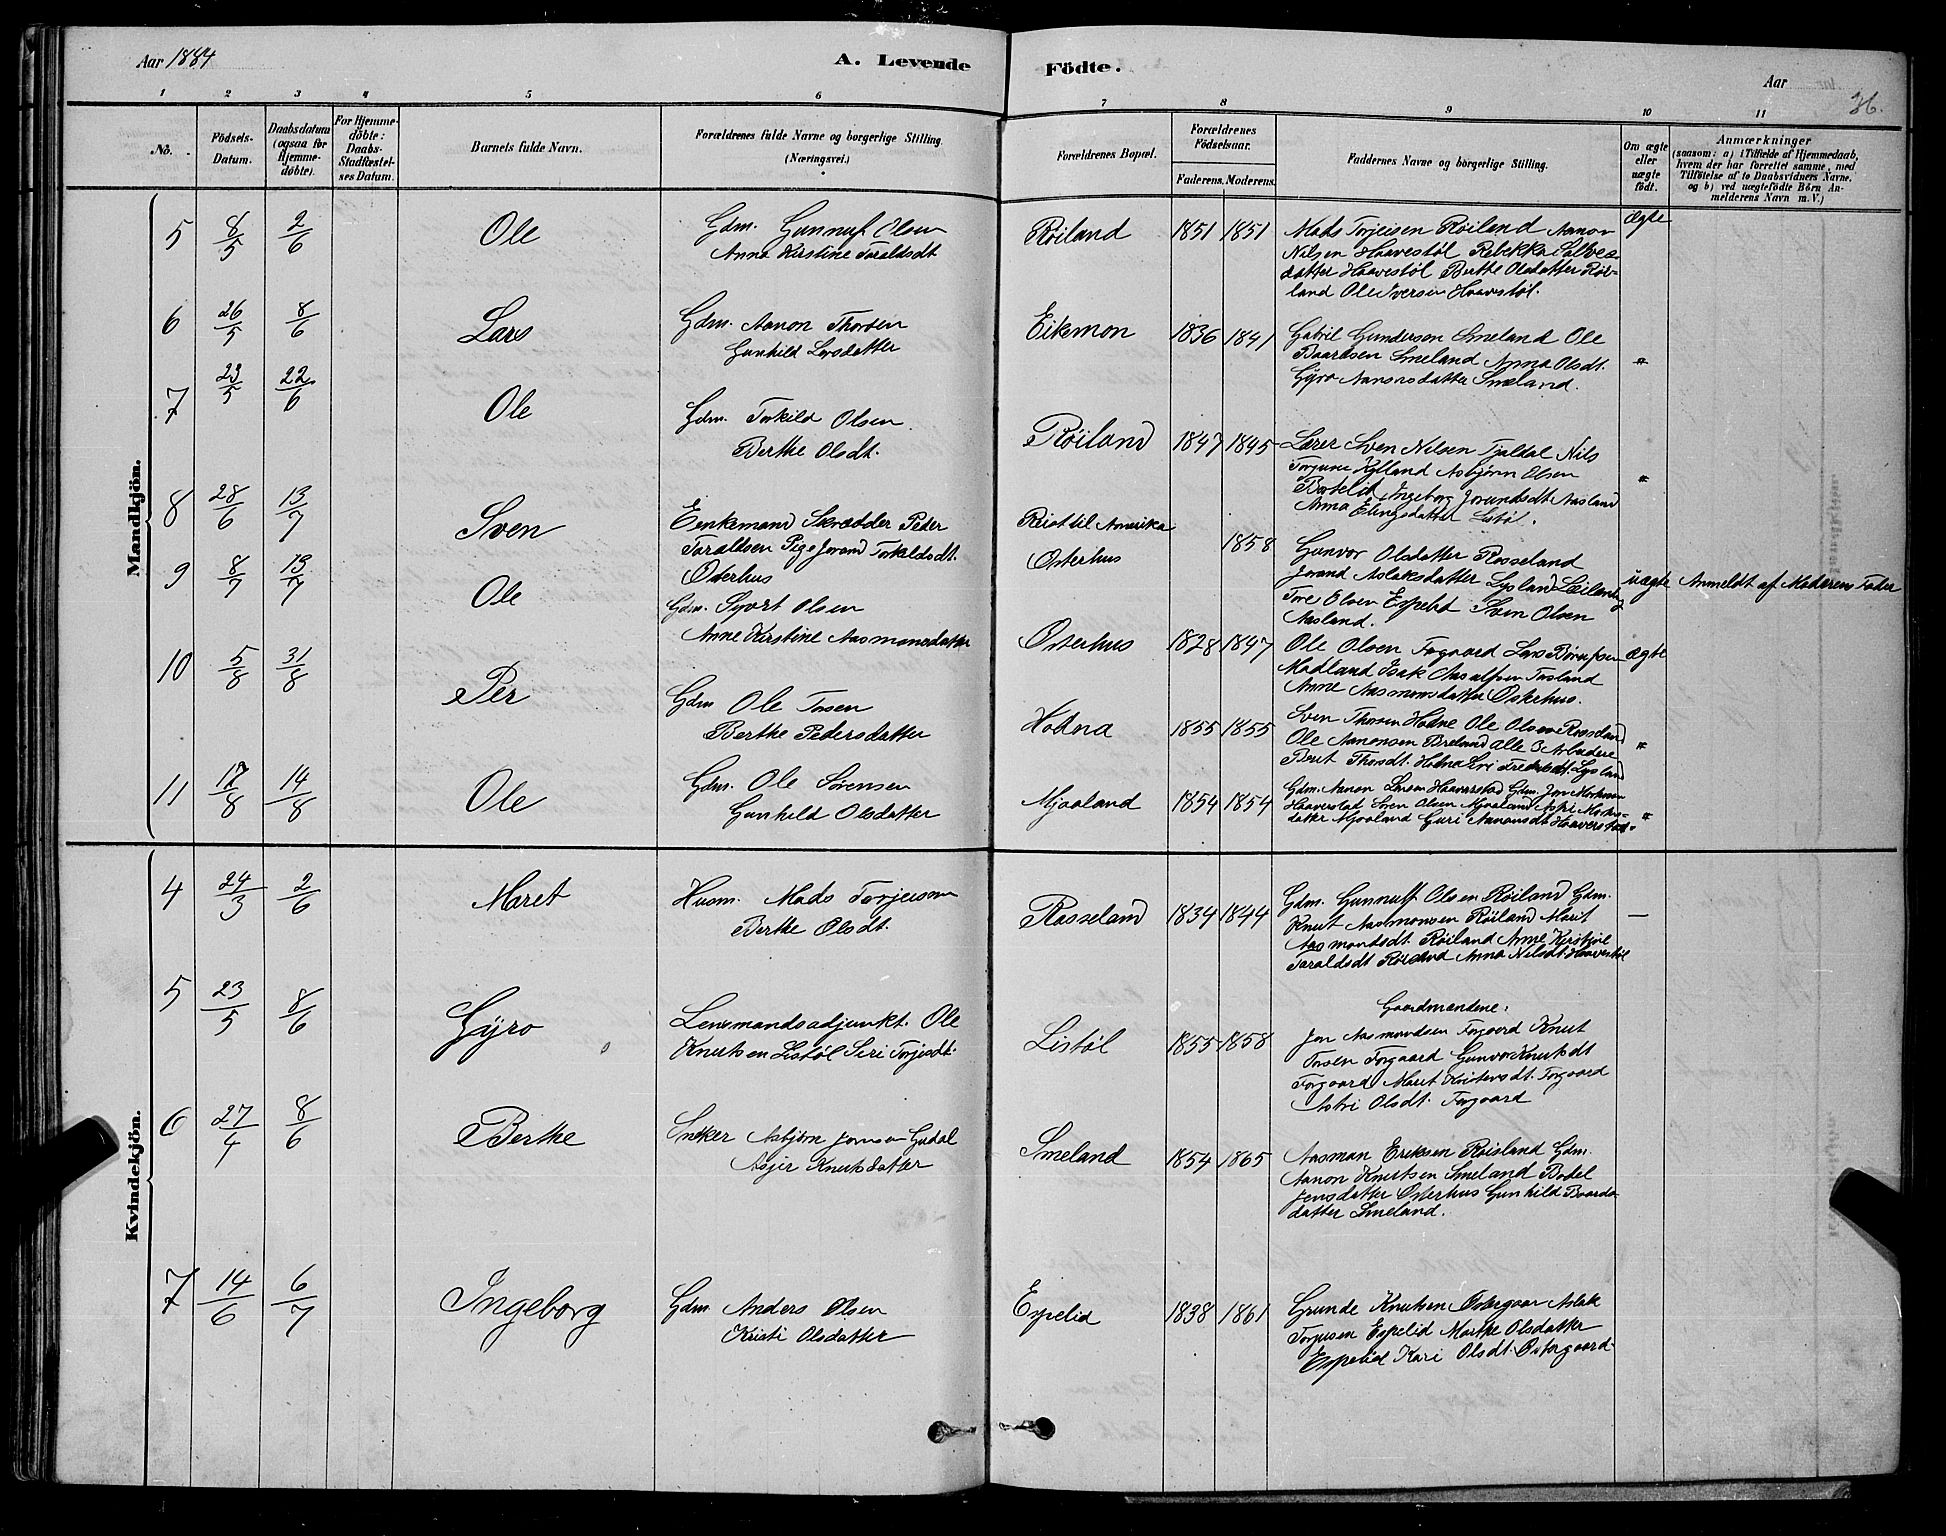 Aar 1884
A. Levende
Födte.
Aar
36.
1 2 3 4 5 6 7 8 9 10 11
No.
Födsels-
Datum.
Daabsdatum
(ogsaa for
Hjemme-
döbte).
For Hjemme-
döbte:
Daabs-
Stadfæstel-
ses Datum.
Barnets fulde Navn.
Forældrenes fulde Navne og borgerlige Stilling.
(Næringsvei.)
Forældrenes Bopæl.
Forældrenes
Födselsaar.
Faderens. Moderens.
Faddernes Navne og borgerlige Stilling.
Om ægte
eller
uægte
födt.
Anmærkninger
(saasom: a) i Tilfælde af Hjemmedaab,
hvem der har forrettet samme, med
Tilföielse af to Daabsvidners Navne.
og b) ved uægtefödte Börn An-
melderens Navn m. V.)
Mandkjön.
5 8/5 2/6 Ole
Gdm. Gunnuf Olsen
Anna Kirstine Taraldsdt
Röiland 1851 1851
Mads Torjeisen Röiland Aanon
Nilsen Haavestøl Rebekka Salves
datter Haavestøl Berthe Olsdatter Röi-
land Ole Iversen Haavestøl.
ægte
6 26/5 8/6 Lars
Gdm. Aanon Thorsen
Gunhild Larsdatter
Eikemon 1836 1841
Gabriel Gunderson Smeland Ole
Baardsen Smeland Anna Olsdt.
Gyro Aanonsdatter Smeland.
"
7 23/5 22/6 Ole
Gdm. Torkild Olsen
Berthe Olsdt.
Röiland 1847 1845
Lærer Sven Nilsen Tjaldal Nils
Torjuse Kylland Asbjørn Olsen
Ingeborg Jorundsdt Aasland
Anna Elingsdatter Listøl.
"
8 28/6 13/7 Sven
Enkemand Skrædder Peder
Taraldsen Pige Jorand Torkildsdt.
Osterhus
Reist til Amerika
Osterhus 1858
Gunvor Olsdatter Rosseland
Jorand Aslaksdatter Lysland
Tore Olsen Espelid Sven Olsen
Aasland.
uægte Anmeldt af Moderens Fader
9 8/7 13/7 Ole
Gdm. Syvert Olsen
Anne Kirstine Aasmonsdatter
Osterhus 1828 1847
Ole Olsen Fogaard Lars
Madland Isak Aasland
Anne Aasmonsdatter Osterhus.
ægte
10 5/8 31/8 Per
Gdm Ole Torsen
Berthe Pedersdatter
Hodna 1855 1855
Sven Thorsen Hodne Ole Olsen Rosseland
Ole Aanonsen Breland alle 3 Arbeidere
Berit Thorsdt. Hodna Siri Fredriksdt. Lysland
"
11 17/8 14/8 Ole
Gdm. Ole Sørensen
Gunhild Olsdatter
Mjaaland 1854 1854
Gdm. Aanon Larsen Haaverstad Gdm. Jon
Haaverstad Søren Olsen Mjaaland Astri
datter Mjaaland Guri Aanonsdt Haaverstad.
"
Kvindekjön.
4 24/3 2/6 Maret
Husm. Mads Torjeisen
Berthe Olsdt.
Rosseland 1834 1844
Gdm. Gunnulf Olsen Röiland Gdm.
Knut Aasmonsen Röiland Marit
Aasmonsdt. Röiland Anne Kirstine
Taraldsdt Röiland Anna Nilsdt. Haavestøl
—
5 23/5 8/6 Gyro
Lensmandsadjunkt. Ole
Knutsen Listøl Siri Torjusdt.
Listøl 1855 1858
Gaardmandene:
Jon Aasmondsen Forgaard Knut
Torsen Forgaard Gunvor Knutsdt
Forgaard Maret Kristensdt. Forgaard
Astri Olsdt. Forgaard
6 27/4 8/6 Berthe
Snekker Asbjørn Jonsen Gudal
Asjer Knutsdatter
Smeland 1854 1865
Aasman Eriksen Röisland Gdm.
Aanon Knutsen Smeland Bodel
Jensdatter Osterhus Gunhild Baards-
datter Smeland.
7 14/6 6/7 Ingeborg
Gdm Anders Olsen
Kristi Olsdatter
Espelid 1838 1861
Grunde Knutsen Østergaar Aslak
Torjusen Espelid Marthe Olsdatter
Espelid Kari Olsdt. Østergaard